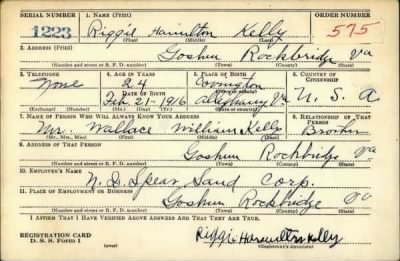 SERIAL NUMBER 1. Name (Print) ORDER NUMBER
1223 Riggie Hamilton Kelly 575
(First) (Middle) (Last)
2. Address (Print)
Goshen Rockbridge Va
(Number and street or R. F. D. number) (Town) (County) (State)
3. Telephone 4. Age in Years 5. Place of Birth 6. Country of Citizenship
None 24 Covington
Date of Birth (Town or county)
Feb. 21-1916 Alleghany Va U. S. A
(Exchange) (Number) (Mo.) (Day) (Yr.) (State or country)
7. Name of Person Who Will Always Know Your Address 8. Relationship of That Person
Mr. Wallace William Kelly Brother
(Mr., Mrs., Miss) (First) (Middle) (Last)
9. Address of That Person
Goshen Rockbridge Va
(Number and street or R. F. D. number) (Town) (County) (State)
10. Employer's Name
N. D. Spear Sand Corp.
11. Place of Employment or Business
Goshen Rockbridge Va
(Number and street or R. F. D. number) (Town) (County) (State)
I Affirm That I Have Verified Above Answers and That They Are True.
REGISTRATION CARD
D. S. S. Form 1 (over) Riggie Hamilton Kelly
(Registrant's signature)